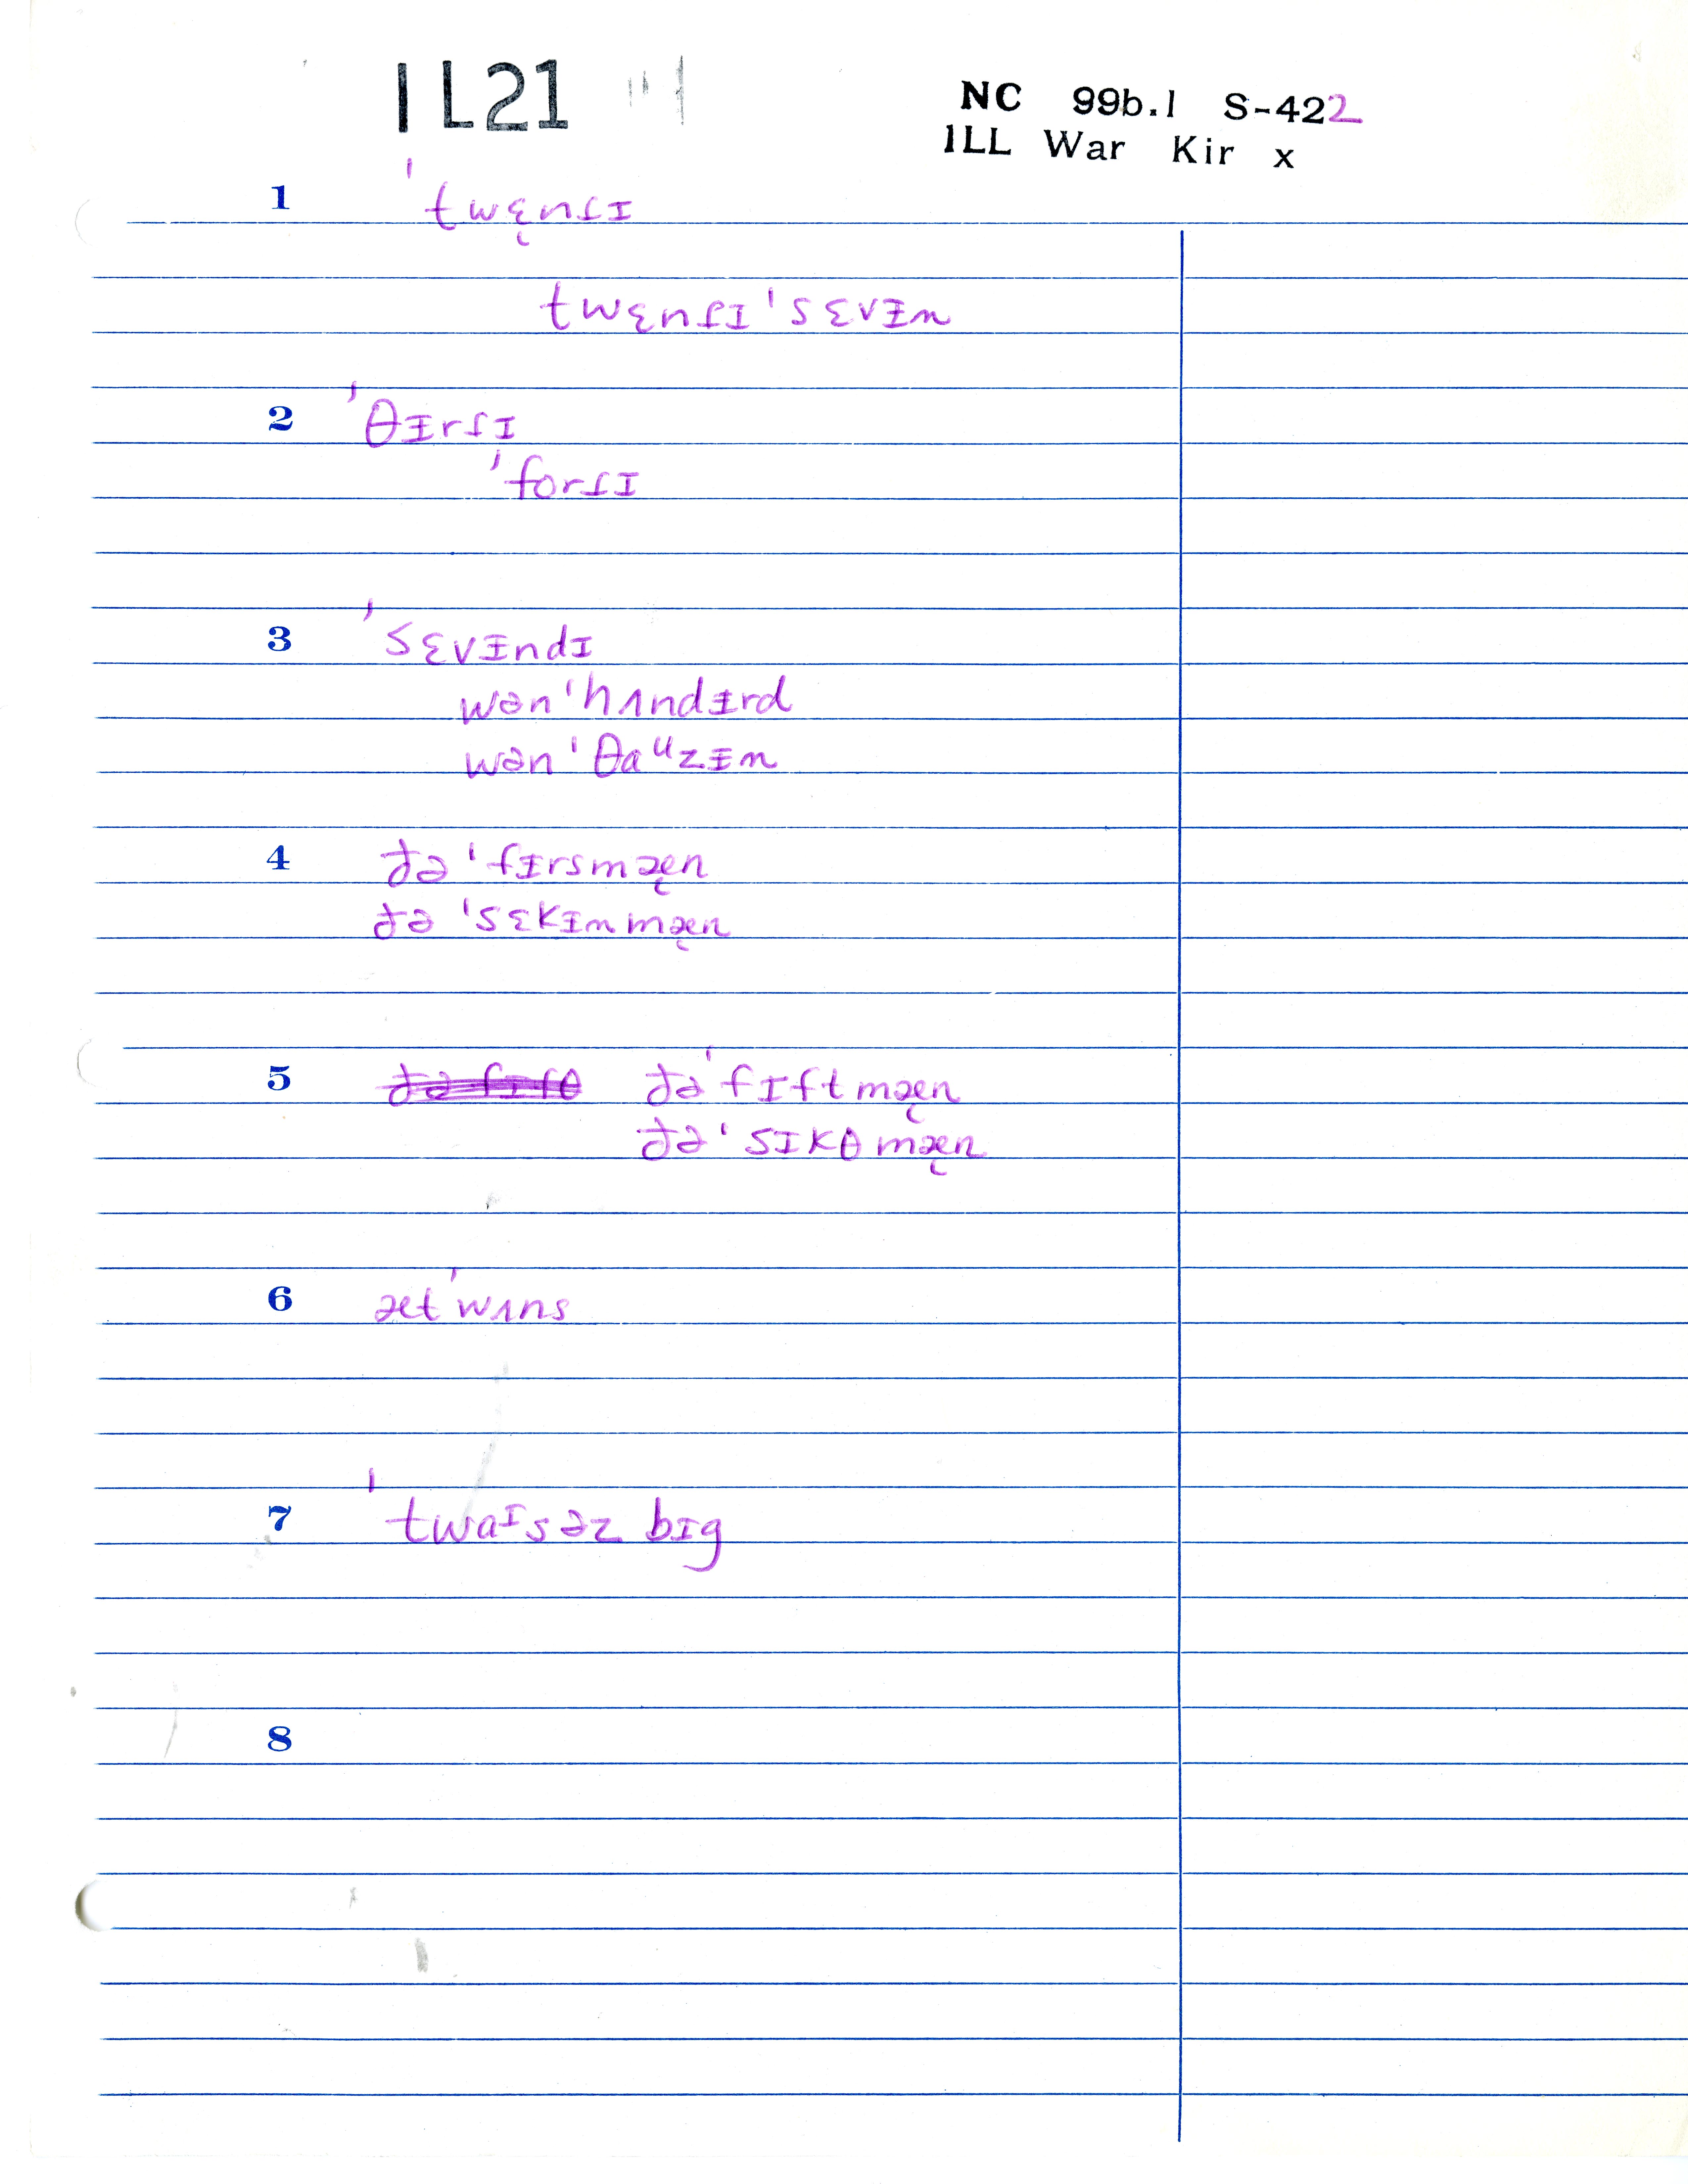 IL21
NC 99b.1 S-422
ILL War Kir x
1 ˈtwɛ̨nɾɪ
twɛnɾɪˈsɛvᵻn
2 ˈθᵻrɾɪ
ˈforɾɪ
3 ˈsɛvᵻndɪ
wənˈhʌndᵻrd
wənˈθaᶸzᵻn
4 ðəˈfᵻrsmæ̨n
ðəˈsɛkᵻnmæ̨n
5 ðə fɪfθ ðəˈfɪftmæ̨n
ðəˈsɪkθmæ̨n
6 ætˈwʌns
7 ˈtwaᶦsəz bɪg
8